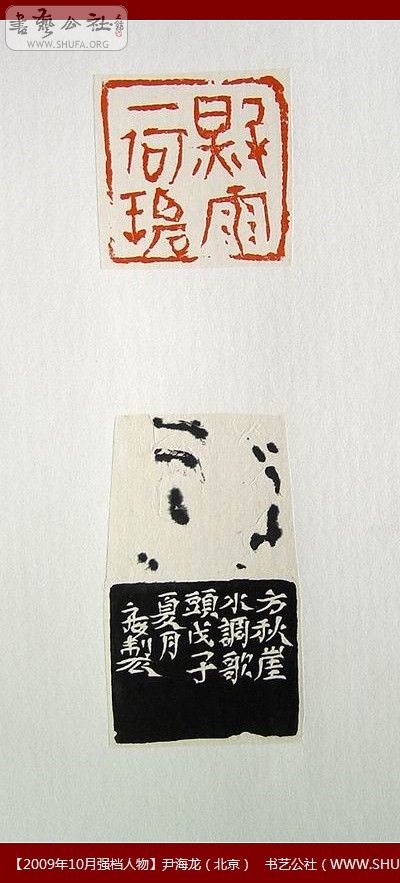 書藝公社
WWW.SHUFA.ORG
秋雨
一何碧
方秋崖
水調歌
頭戊子
夏月
製
【2009年10月强档人物】尹海龙（北京） 书艺公社（WWW.SHU